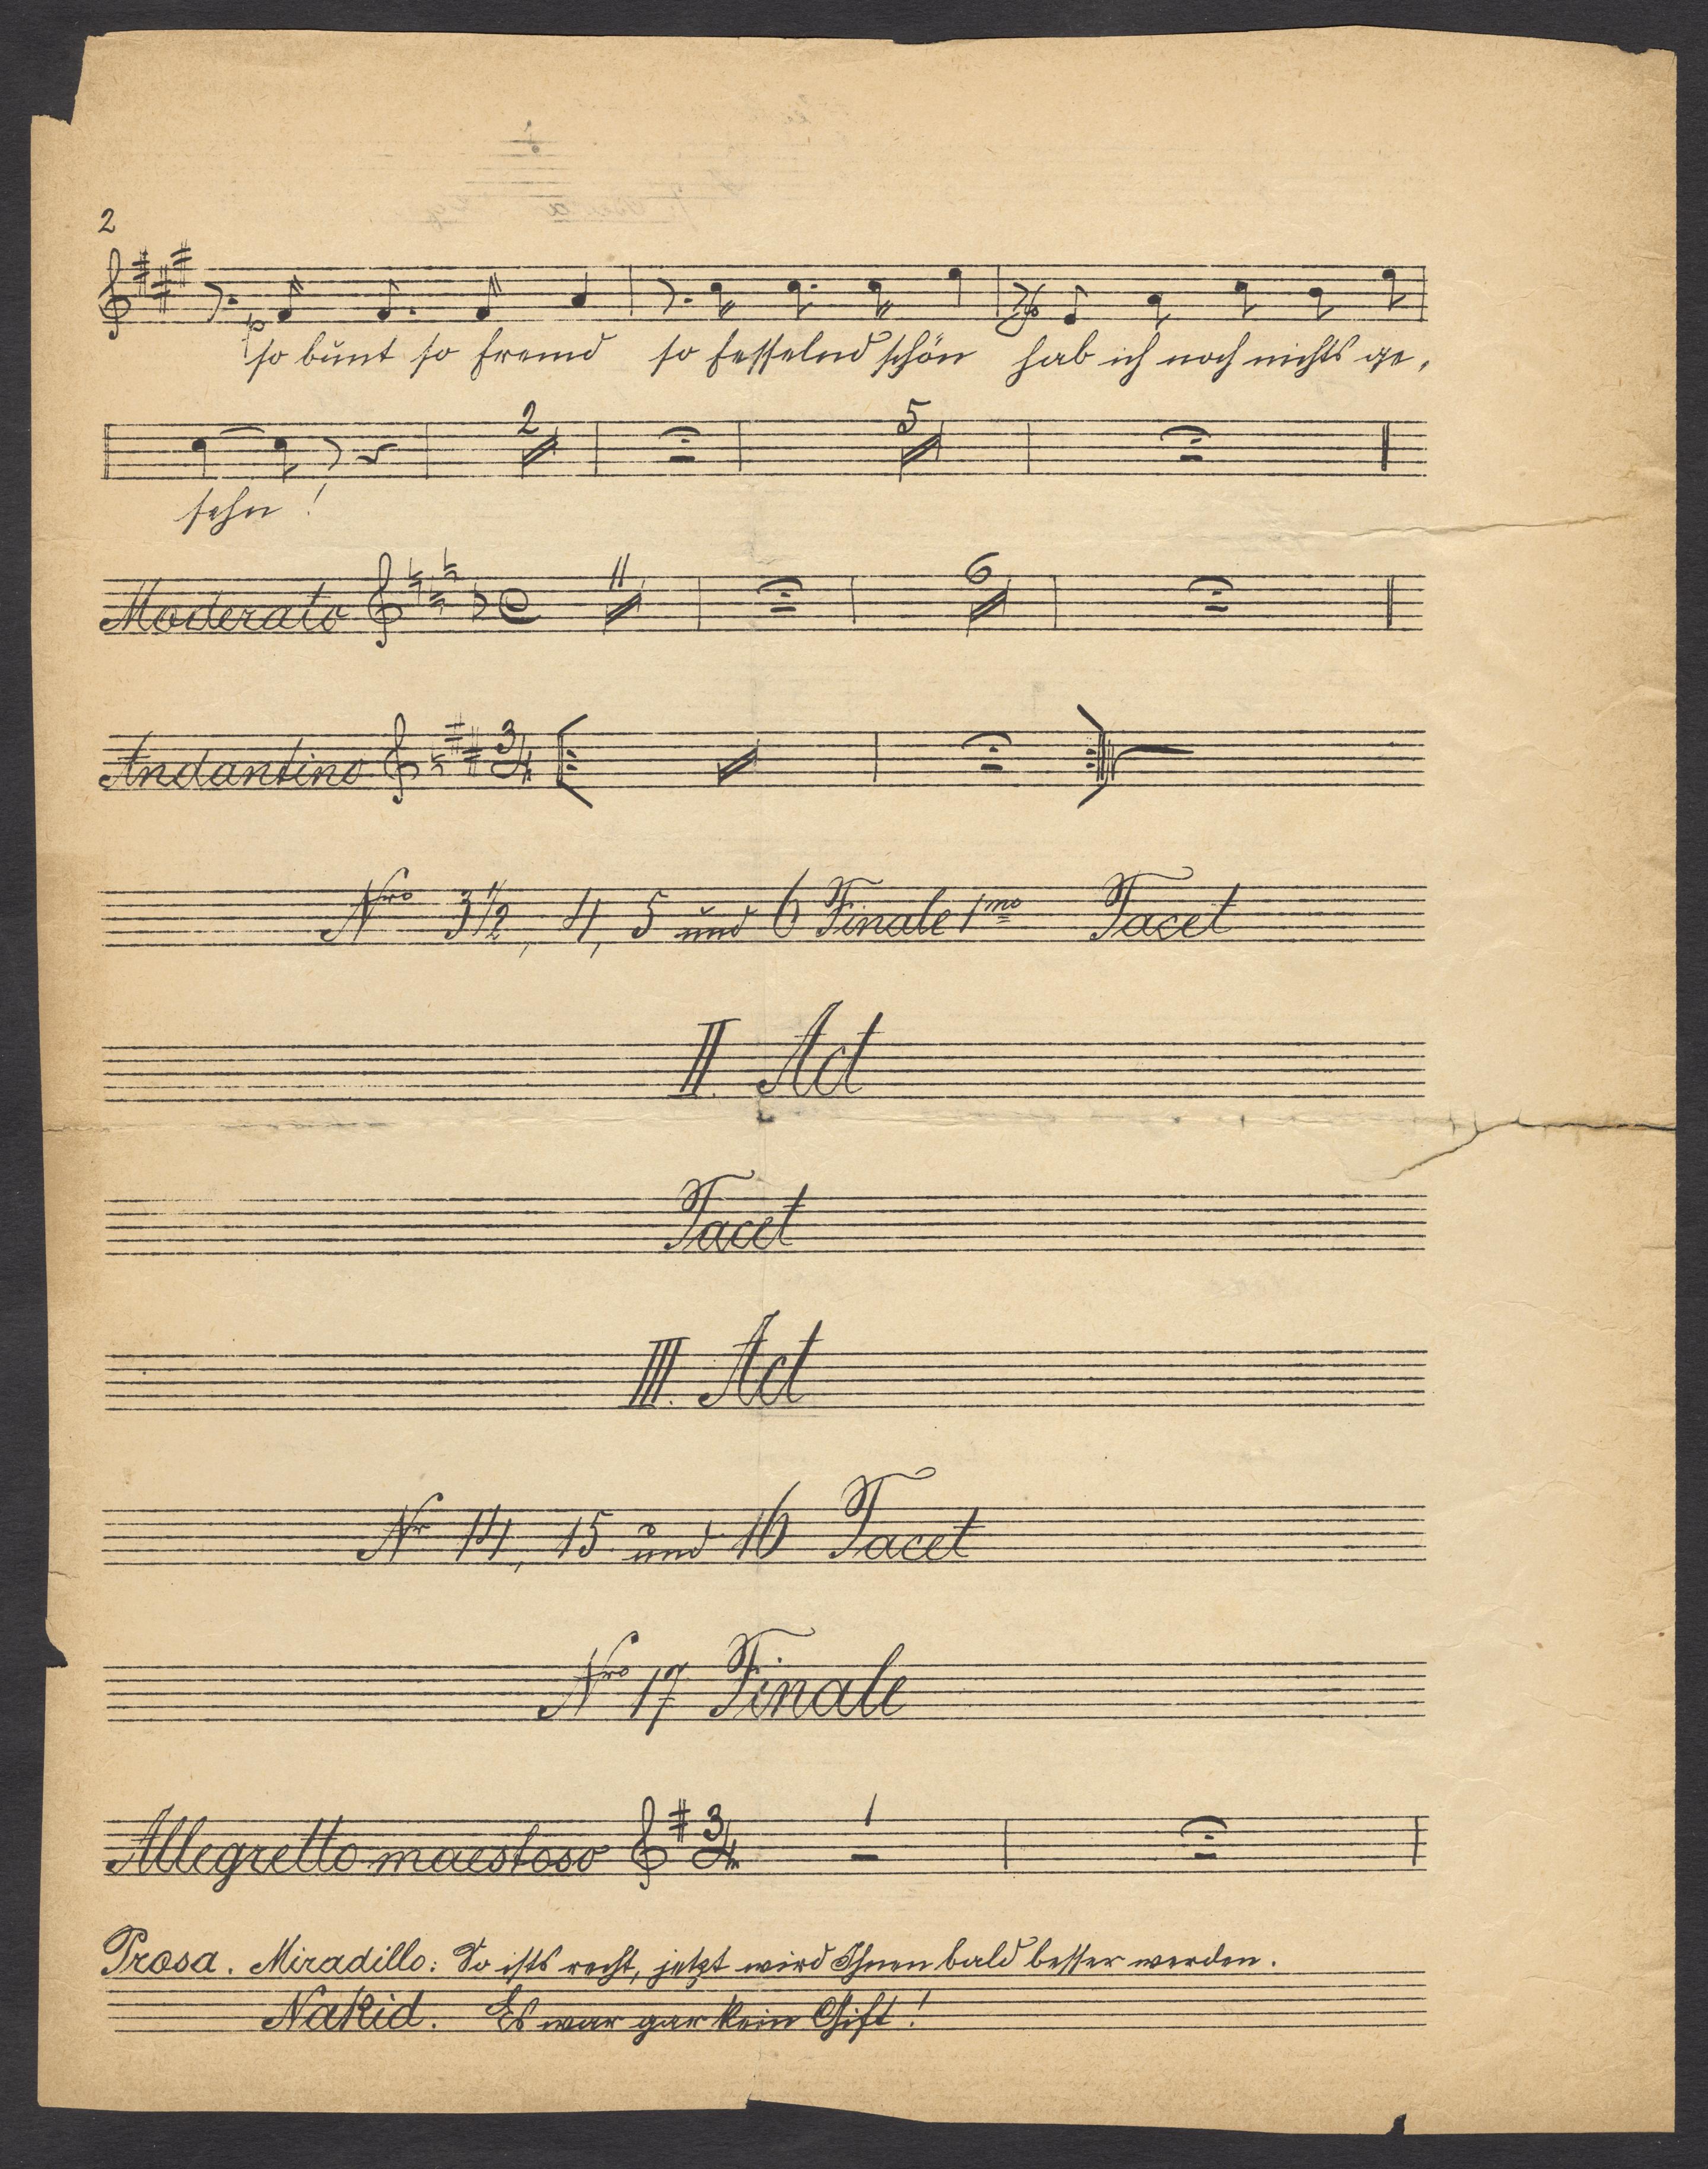 2
so bunt so fremd so fesselnd schön hab ich noch nichts ge-
2 5
sehn!
Moderato 11 6
Andantino 3/4
Nro 3½, 4, 5 und 6 Finale 1mo Tacet
II. Act
Tacet
III. Act
Nr 14, 15 und 16 Tacet
Nro 17 Finale
Allegretto maestoso 3/4 1
Prosa. Miradillo: So ists recht, jetzt wird Ihnen bald besser werden.
Nakid. Es war gar kein Gift!